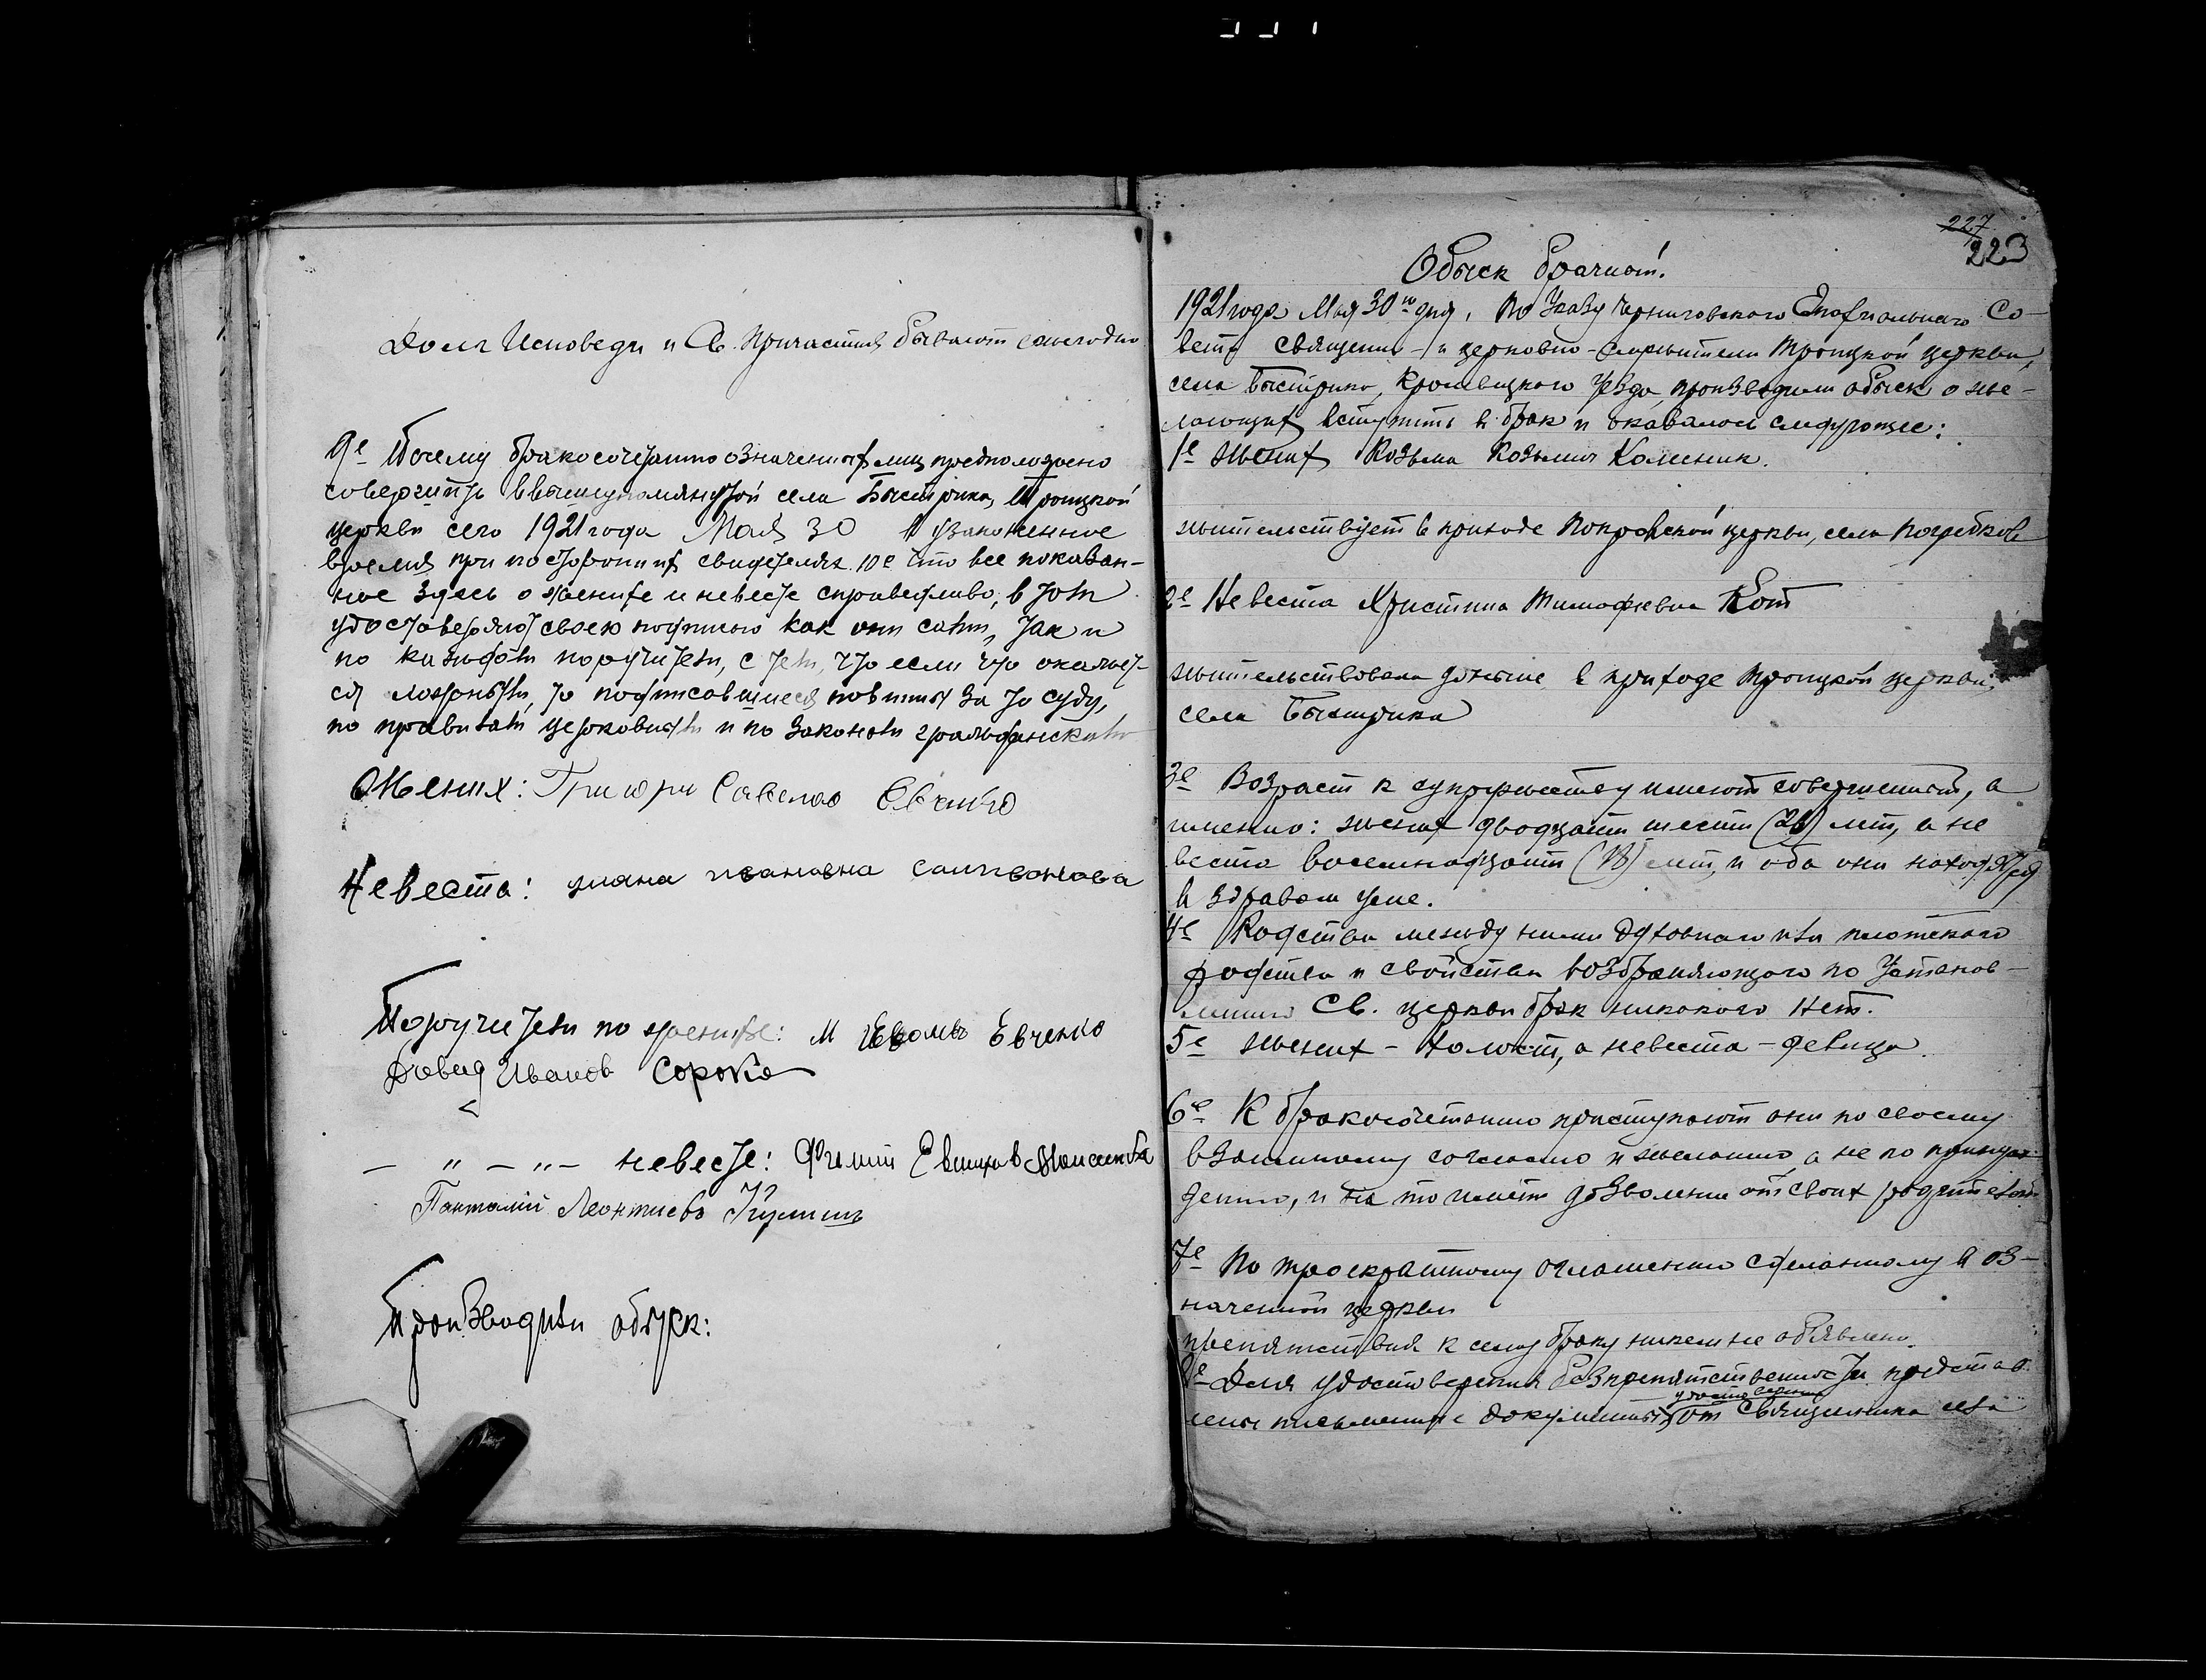 Долг Исповеди и Св. Причастия бывают ежегодно
9е Посему бракосочетанию означенных лиц предположено
совершить в вышеупомянутой села Быстрика, Троицкой
церкви сего 1921 года Мая 30 в узаконенное
время при посторонних свидетелях. 10е Что все показан-
ное здесь о женихе и невесте справедливо, в том
удостоверяют своею подписью как они сами, так и
по каждом поручители, с тем, что если что окажет-
ся ложным, то подписавшиеся повинны за то суду,
по правилам церковным и по законам гражданским
Жених: Григори Савелов Евченко
Невеста: уляна ивановна
Поручители по женихе: М Евченко
Давид Иванов Сорока
— " — " — невесте: Евтихов
Пантелий Леонтиевъ
Производили обыск:
227
223
Обыск брачный.
1921 года Мая 30го дня, по Указу Черниговского Епархиального Со-
вета священно- и церковно-служители Троицкой церкви,
села Быстрика, Кролевецкого уезда, производили обыск о же-
лающих вступить в брак и оказалось следующее:
1е Жених Козьма Козьмич Коленик.
жительствует в приходе Покровской церкви, села Погребков
2е Невеста Христина Тимофеевна Кот
жительствовала доныне в приходе Троицкой церкви,
села Быстрика
3е Возраст к супружеству имеют совершенный, а
именно: жених двадцать шесть (26) лет, а не
веста восемнадцать (18) лет, и оба они находятся
в здравом уме.
4е Родства между ними духовного или плотского
родства и свойства возбраняющего по Установ-
лению Св. церкви брак никакого нет.
5е Жених - холост, а невеста - девица.
6е К бракосочетанию приступают они по своему
взаимному согласию и желанию, а не по принуж-
дению, и на то имеют дозволение от своих родителей
7е По троекратному оглашению сделанному в оз-
наченной церкви
препятствия к сему браку никем не объявлено.
8е Для удостоверения безпрепятственности представ-
удостоверение
лены письменные документы: от священника села